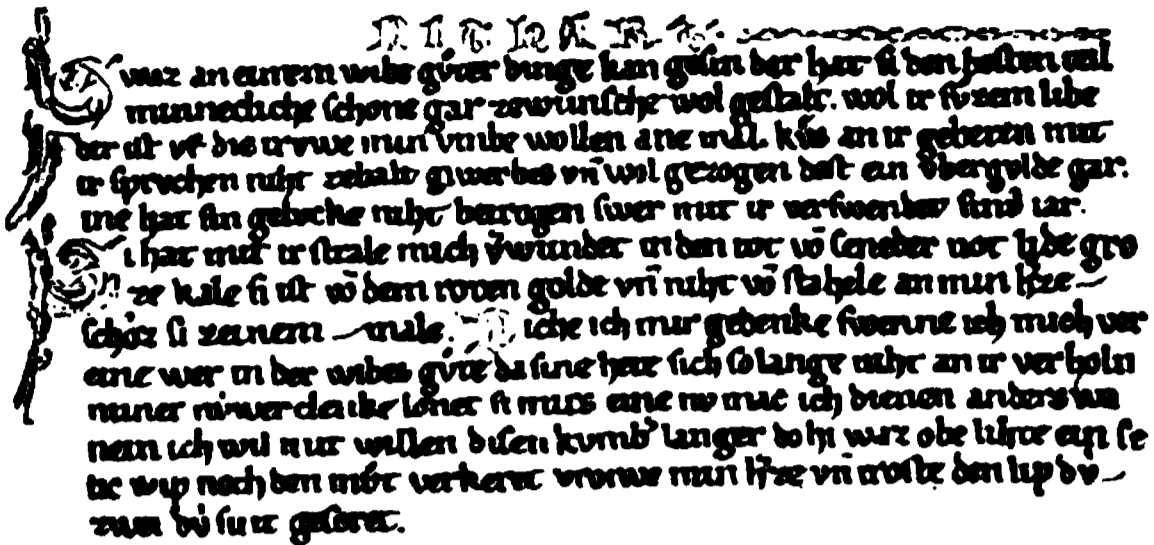 NITHART
Swaz an einem wibe gv̊ter dinge kan gesin der hat si den besten teil
minnecliche schone gar zewunsche wol gestalt. wol ir svzem libe
der ist vf die trvwe min vmbe wollen ane mal. an ir geberen mit
ir sprechen niht zebalt gewerbes vn̄ wol gezogen dast ein vbergvlde gar.
me hat sin gelucke niht betrogen swer mit ir verswendet sinv̍ iar.
Si hat mit ir strale mich v̄wundet in den tot vō seneder not lide gro
ze kale si ist vō dem roten golde vn̄ niht vō stahele an min h̄ze
schoz si zeinem male. iche ich mir gedenke swenne ich mich ver
eine wer in der wibes gvte da sine hete sich so lange niht an ir verholn
miner lonet si mirs eine nv mac ich dienen anderswa
nein ich wil mit willen disen kvmb̄ langer doln waz obe lihte ein se
lic wip noch den mv̊t verkeret vrowe min h̄ze vn̄ troste den lip dv
zwei geseret.